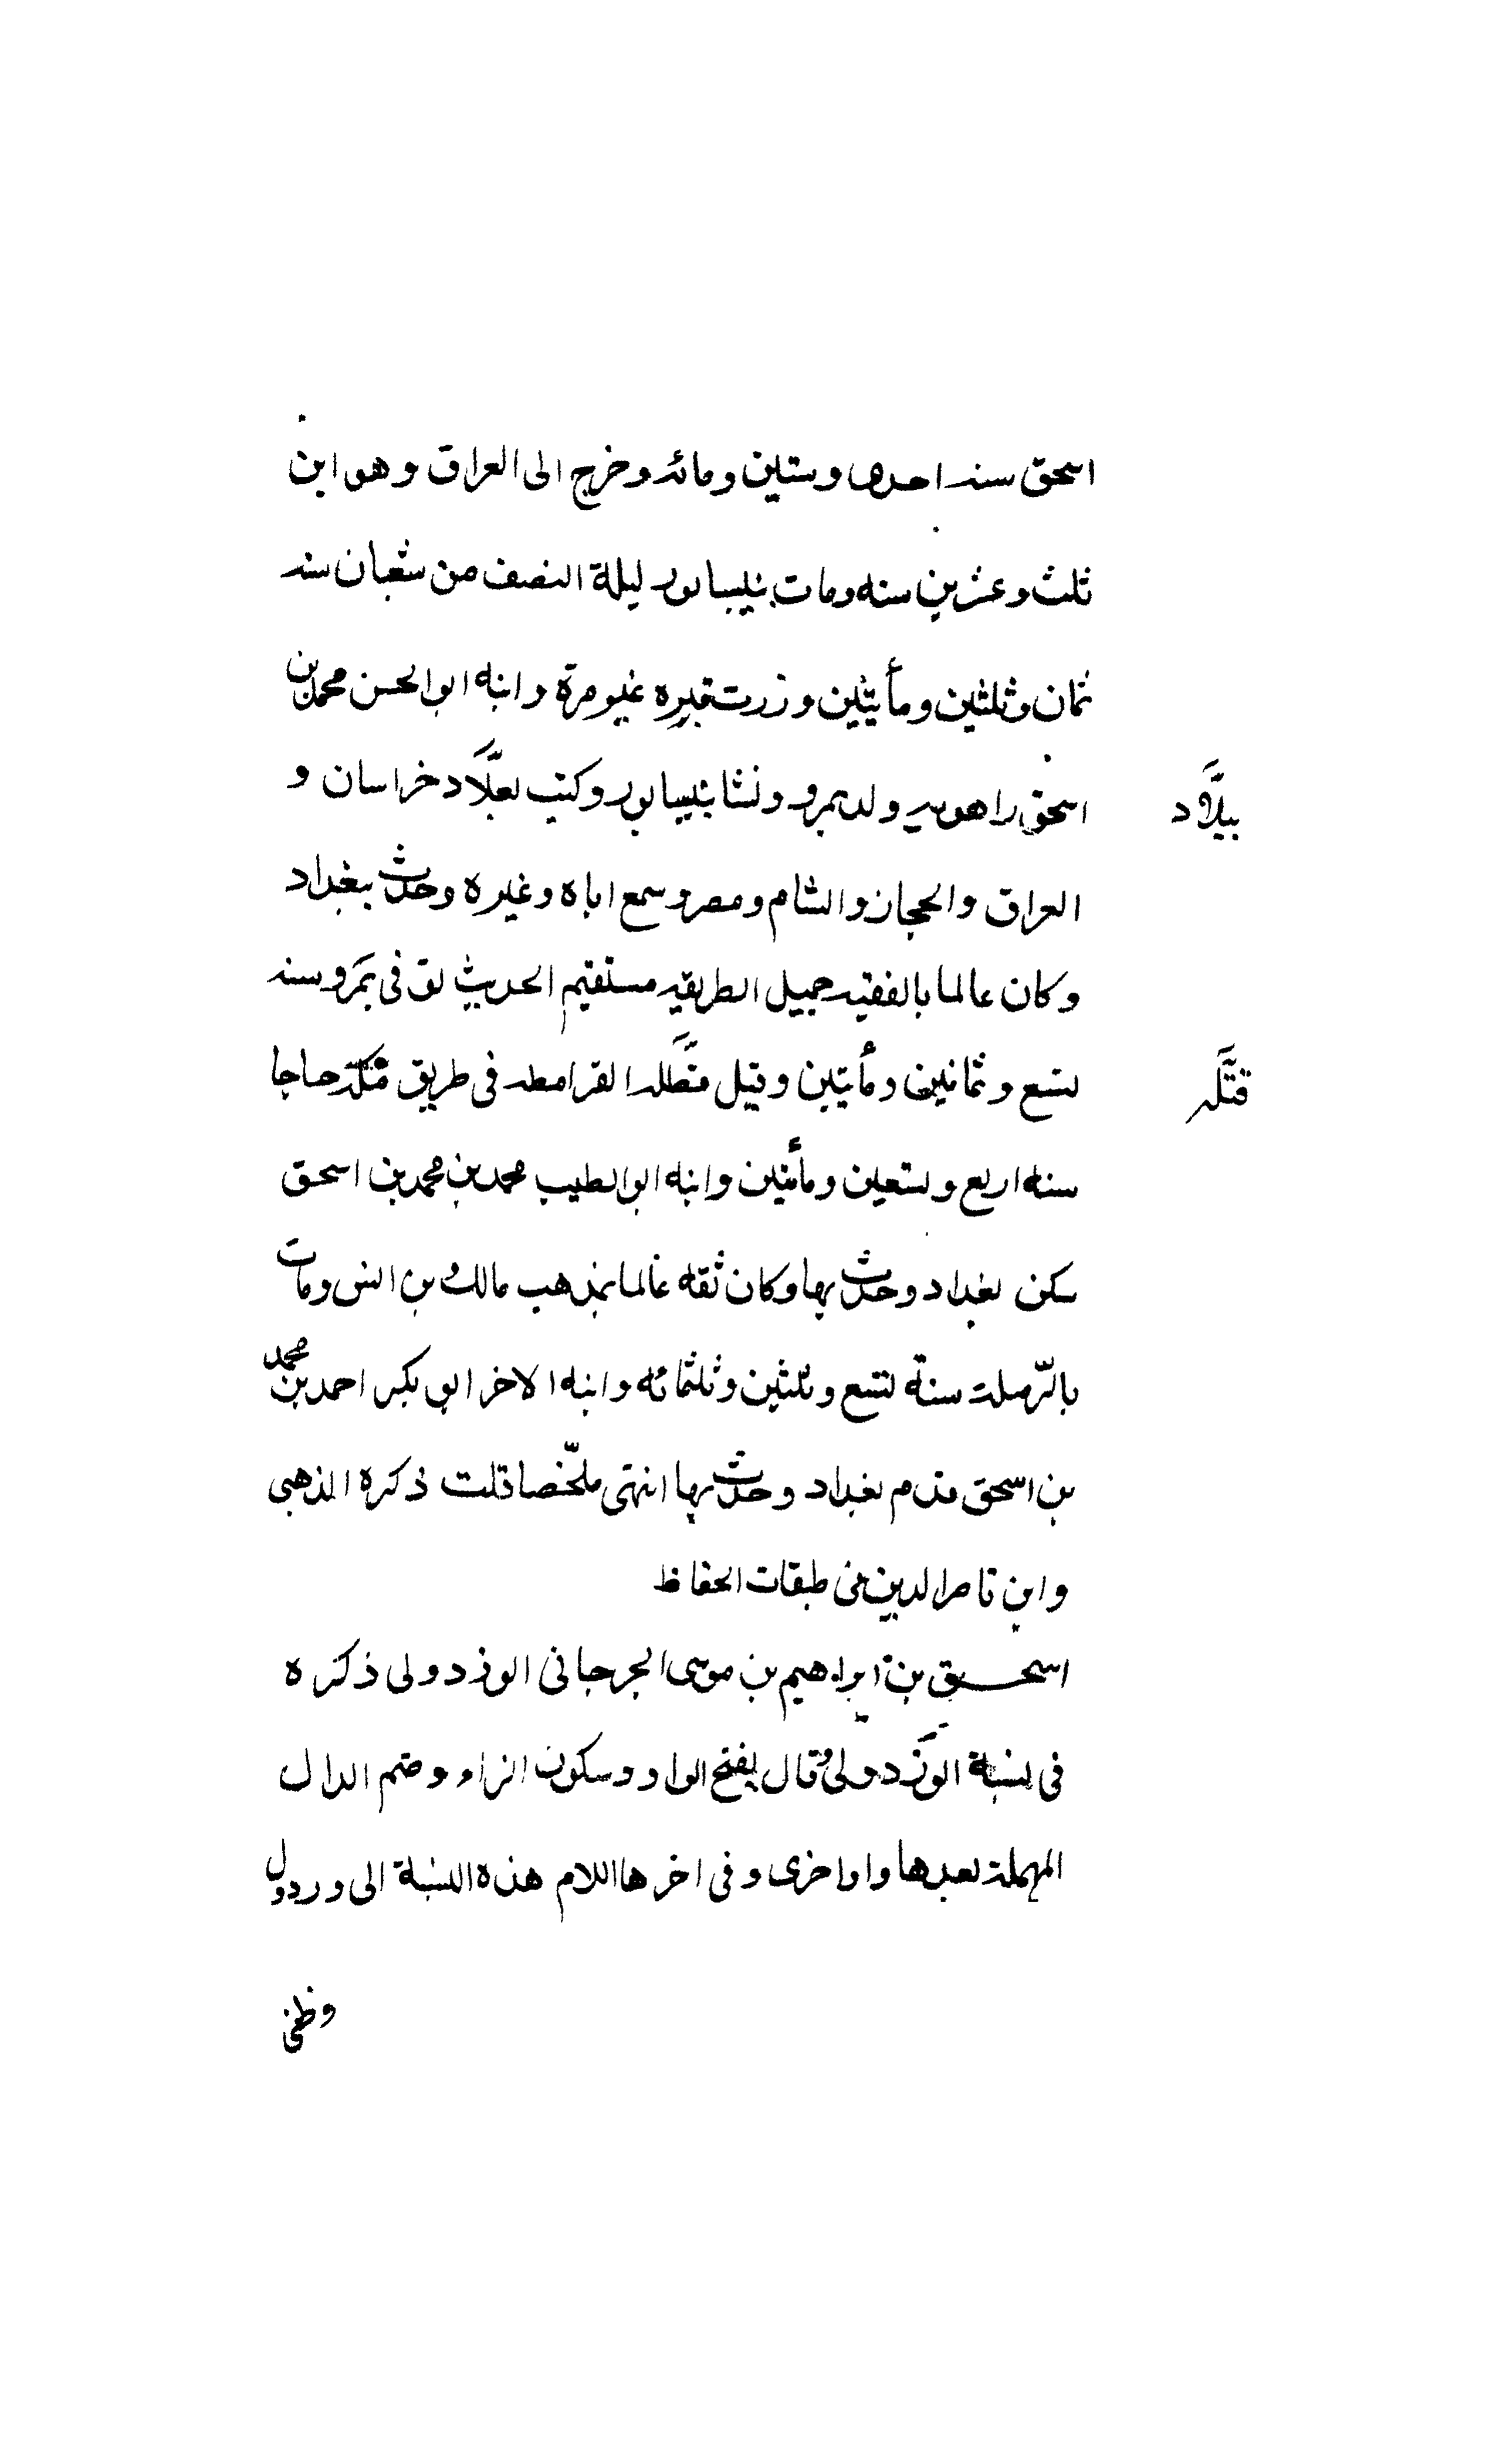 اسحق سنه احدى وستين ومائه وخرج الى العراق وهو ابن
ثلث وعشرين سنه ومات بنيسابور ليلة النصف من شعبان سنه
ثمان وثلثين ومأيتين وزرت قبره غير مرة وابنه ابو الحسن محمد بن
اسحق راهويه ولد بمرو ونشا بنيسابور وكتب ببلاد خراسان و
ببلاد
العراق والحجاز والشام ومصر وسمع اباه وغيره وحدث ببغداد
وكان عالما بالفقيه جميل الطريقه مستقيم الحديث توفى بمرو سنه
تسع وثمانين ومأيتين وقيل قتله القرامطه فى طريق مكة حاجا
قتله
سنه اربع وتسعين ومأتين وابنه ابو الطيب محمد بن محمد بن اسحق
سكن بغداد وحدث بها وكان ثقه عالما بمذهب مالك بن انس ومات
بالرّملة سنة تسع وثلثين وثلثمائه وابنه الاخر ابو بكر احمد بن محمد
بن اسحق قدم بغداد وحدث بها انتهى ملخّصا قلت ذكره الذهبى
وابن ناصر الدين فى طبقات الحفاظ
اسحق بن ابراهيم بن موسى الجرجانى الوزدولى ذكره
فى نسبة الوَزدولى وقال بفتح الواو وسكون الزاء وضم الدال
المهملة بعدها واو اخرى وفى اخرها اللام هذه النسبة الى وردول
وظنى